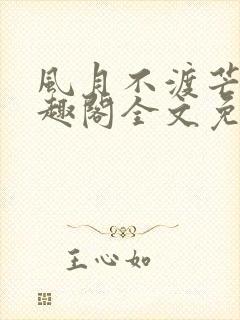 風月不渡芒
趣閣全文免
王心如